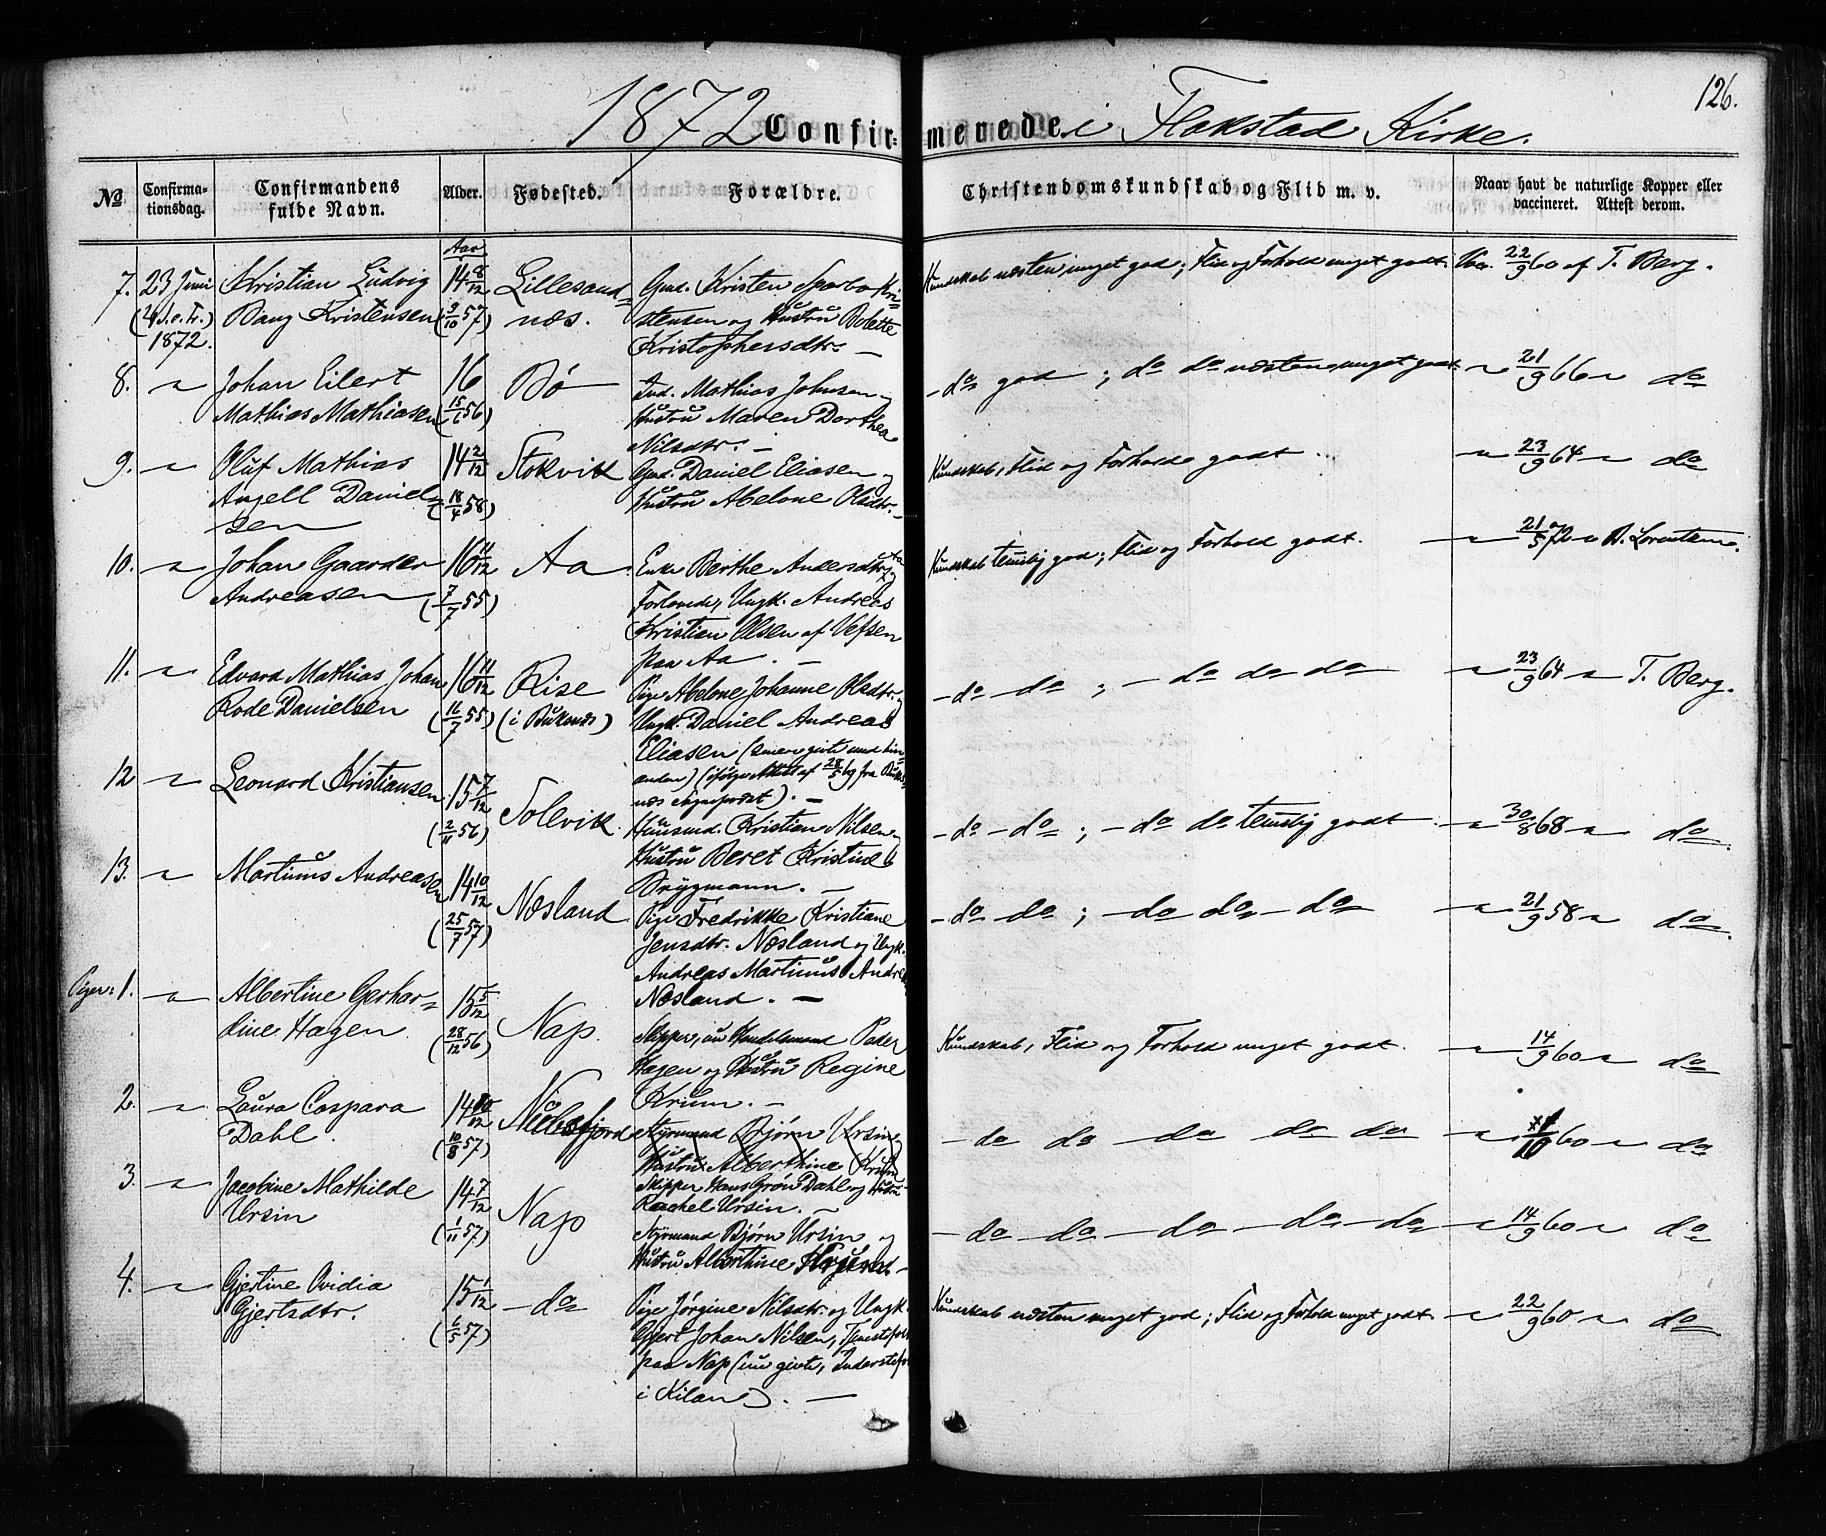 126.
1872 Confirmerede i Flakstad Kirke.
No
Confirmationsdag.
Confirmandens fulde Navn.
Alder.
Fødested.
Forældre.
Christendomskundskab og Flid m. v.
Naar havt de naturlige Kopper eller vaccineret. Attest derom.
Aar
7. 23 Juni Kristian Ludvig 14 8/12 Lillesand- Gmd. Kristen Sparbo Kri- Kundskab næsten meget god; Flid og Forhold meget godt. Va. 22/9 60 af T. Berg.
(4 S. e. Tr.) Bang Kristensen (9/10 57) næs. stensen og Hustru Bolette
1872. Kristophersdtr. —
8. " Johan Eilert 16 Bø Ind. Mathias Johnsen og — do god ; do do næsten meget godt " 21/9 66 " do
Mathias Mathiasen (15/6 56) Hustru Maren Dorthea
Nilsdtr. —
9. " Oluf Mathias 14 2/12 Stokvik Gmd. Daniel Eliasen og Kundskab, Flid og Forhold godt. " 23/9 64 " do
Angell Daniel- (18/4 58) Hustru Abelone Olsdtr. —
sen
10. " Johan Gaarder 16 11/12 Aa Enke Berthe Andersdtr. Aa og Kundskab temelig god; Flid og Forhold godt. " 21/5 72 " B. Lorentzen.
Andreasen (7/7 55) Forlovede, Ungk. Andreas
Kristian Olsen af Vefsen
paa Aa. —
11. " Edvard Mathias Johan 16 11/12 Rise Pige Abelone Johanne Olsdtr. og — do — do ; — do do do " 23/9 64 " T. Berg.
Rode Danielsen (16/7 55) (i Buksnæs) Ungk. Daniel Andreas
Eliasen (senere givte med hin-
anden) (ifølge Attest af 28/5 69 fra Buks-
næs Sognepræst). —
12 " Leonard Kristiansen 15 7/12 Solevik Huusmd. Kristian Nilsen og — do — do ; — do do temelig godt " 30/8 68 " do
(2/11 56) Hustru Beret Kristine
Brygmann. —
13. " Martinus Andreasen 14 10/12 Næsland Pige Fredrikke Kristiane — do do ; — do do — do " 21/9 58 " do
(25/7 57) Jensdtr. Næsland og Ungk.
Andreas Martinus Andre
Næsland. —
Piger: 1. " Albertine Gerhar- 15 5/12 Nap. Skipper, nu Handelsmand Peder Kundskab, Flid og Forhold meget godt. " 14/9 60 " do
dine Hagen (28/12 56) Hagen og Hustru Regine
Krum. —
2. " Laura Caspara 14 10/12 Nusfjord Styrmand Bjørn Ursin og — do do — do do do " 60 " do
Dahl. (10/8 57) Hustru Alberthine Krum
Skipper Hans Grøn Dahl og Hustru
Rachel Ursin. —
3. " Jacobine Mathilde 14 7/12 Nap Styrmand Bjørn Ursin og — do — do — do — do — do " 14/9 60 " do
Ursin (1/11 57) Hustru Alberthine
4. " Gjertine Ovidia 15 1/12 — do Pige Jørgine Nilsdtr. og Ungk. Kundskab næsten meget god; Flid og Forhold meget godt. " 22/9 60 " do
Gjertsdtr. (6/5 57) Gjert Johan Nilsen, Tjenestefolk
paa Nap (nu givte, Inderstefo
i Kilan). —